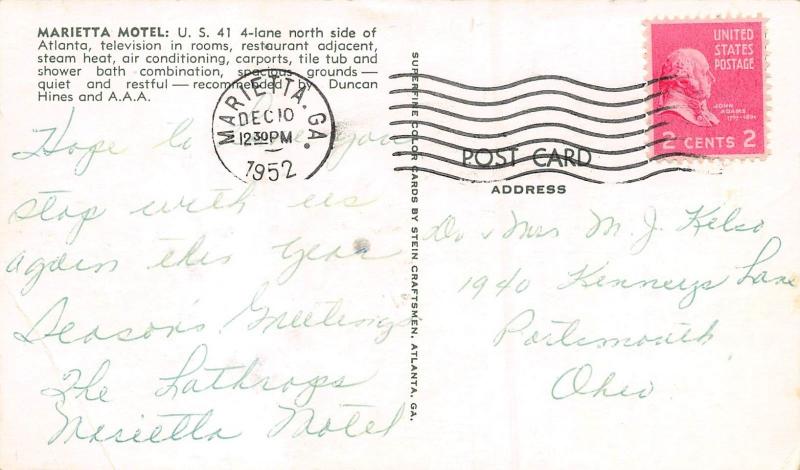 MARIETTA MOTEL: U. S. 41 4-lane north side of
Atlanta, television in rooms, restaurant adjacent,
steam heat, air conditioning, carports, tile tub and
shower bath combination, spacious grounds—
quiet and restful—recommended by Duncan
Hines and A.A.A.
MARIETTA. GA.
DEC 10
12 30 PM
1952
UNITED
STATES
POSTAGE
JOHN
ADAMS
2 CENTS 2
POST CARD
ADDRESS
SUPERTINE COLOR CARDS BY STEIN CRAFTSMEN, ATLANTA, GA.
Hope to have you
stop with us
again this year
Season's Greetings
The Lathrops
Marietta Motel
Dr & Mrs M. J. Kelso
1940 Kennerys Lane
Portsmouth
Ohio